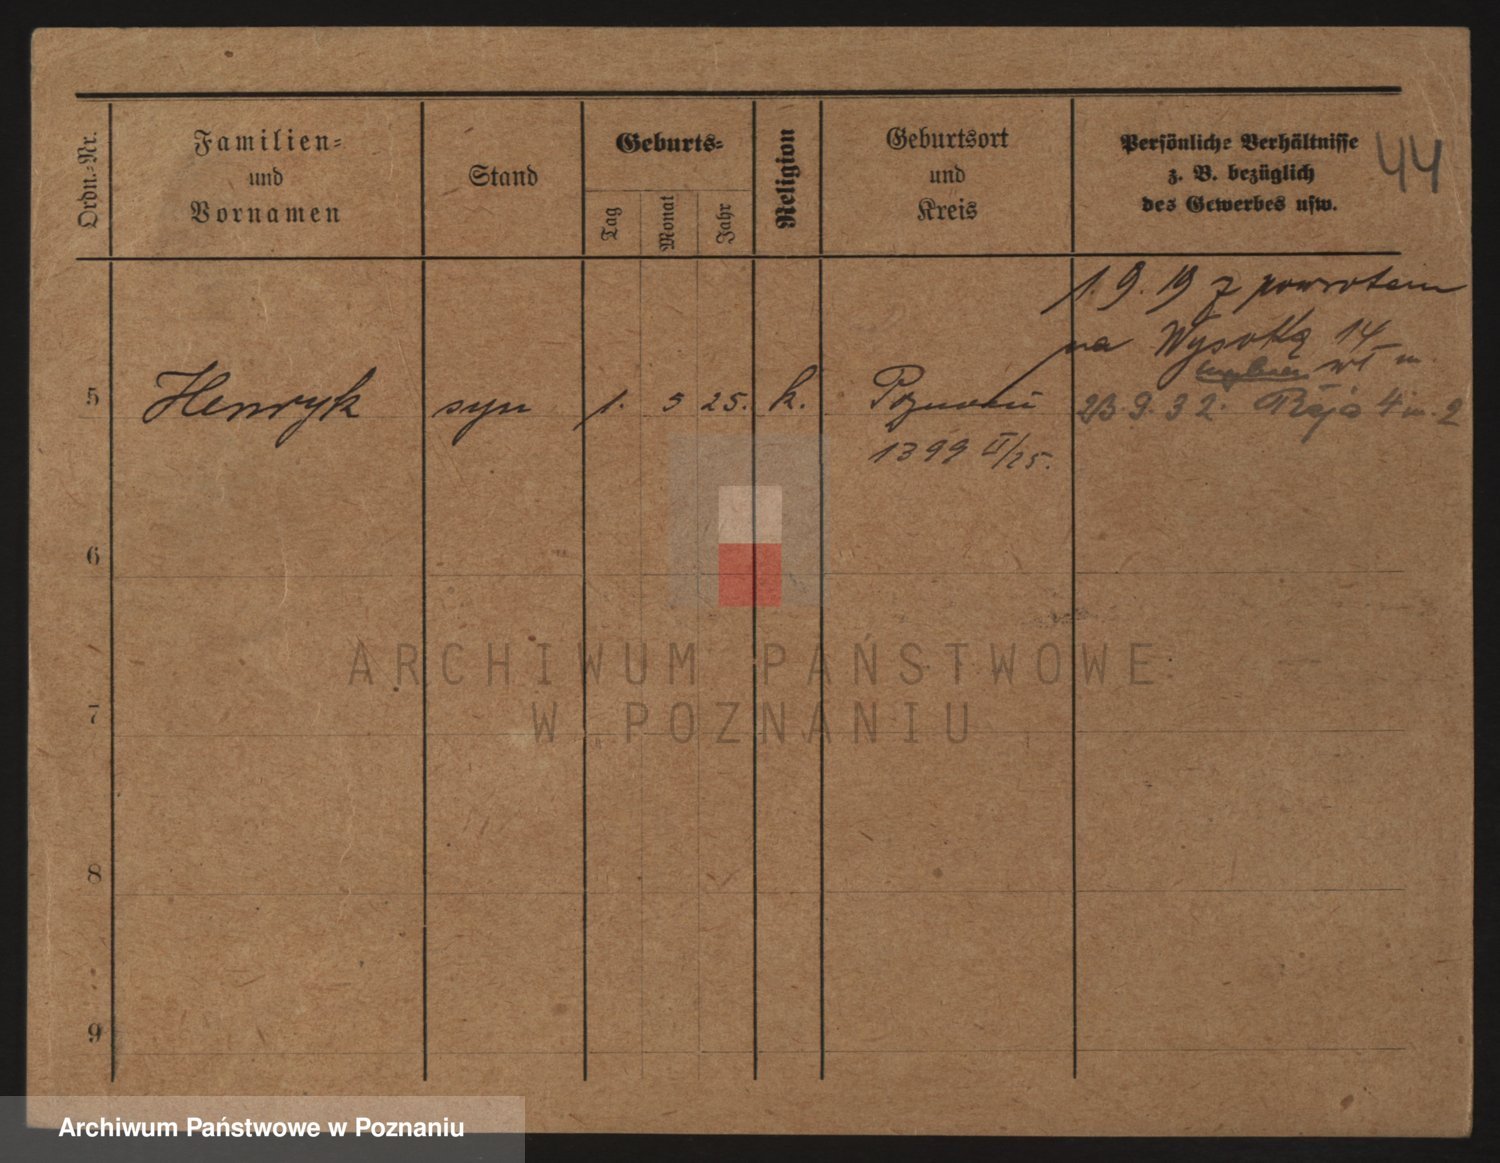 Ordn.-Nr.
Familien-
und
Vornamen
Stand
Geburts-
Tag
Monat
Jahr
Religion
Geburtsort
und
Kreis
Persönliche Verhältnisse
z. B. bezüglich
des Gewerbes usw.
44
1. 9. 19 z powrotem
na Wysoką 14
wł m.
5 Henryk syn 1. 5 25. k. Poznań 23. 9. 32. 4 m. 2
1399 II/25.
6
7
8
9
ARCHIWUM PAŃSTWOWE
W POZNANIU
Archiwum Państwowe w Poznaniu